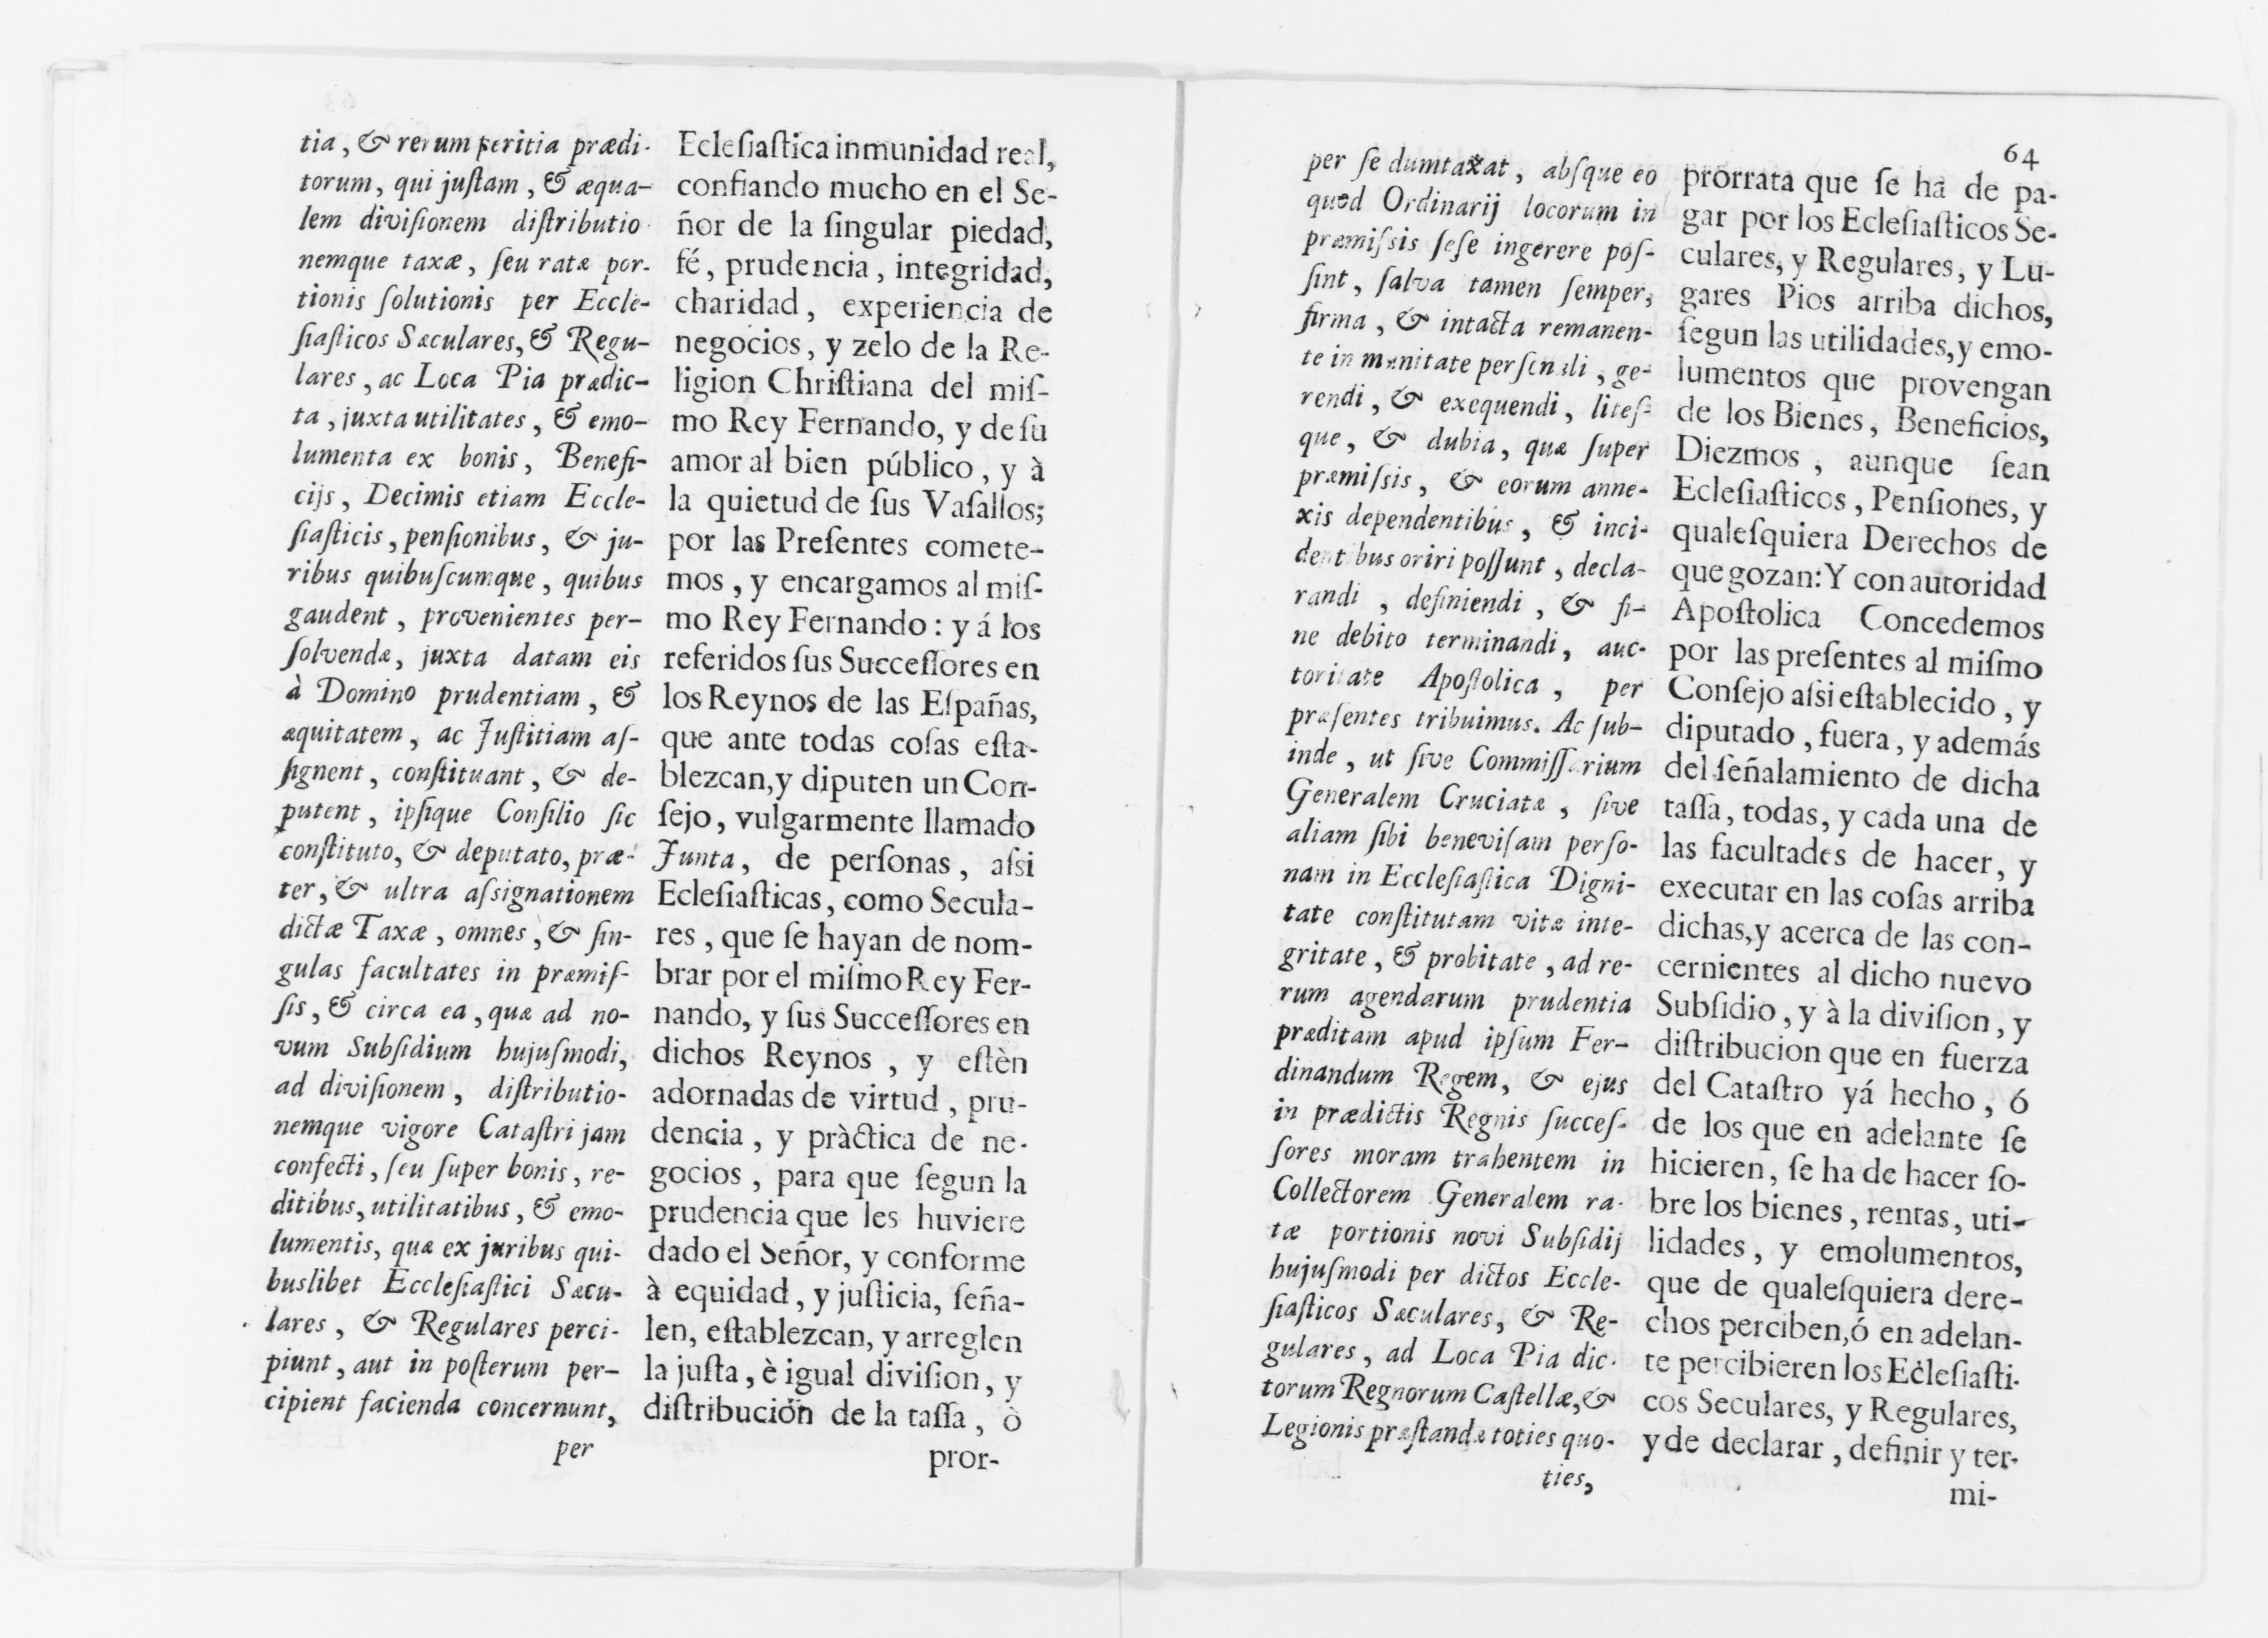 tia, & rerum peritia prædi-
torum, qui juſtam, & æqua-
lem diviſionem diſtributio
nemque taxæ, ſeu ratæ por-
tionis ſolutionis per Eccle-
ſiaſticos Sæculares, & Regu-
lares, ac Loca Pia prædic-
ta, juxta utilitates, & emo-
lumenta ex bonis, Benefi-
cijs, Decimis etiam Eccle-
ſiaſticis, penſionibus, & ju-
ribus quibuſcumque, quibus
gaudent, provenientes per-
ſolvendæ, juxta datam eis
à Domino prudentiam, &
æquitatem, ac Juſtitiam aſ-
ſignent, conſtituant, & de-
putent, ipſique Conſilio ſic
conſtituto, & deputato, præ-
ter, & ultra aſsignationem
dictæ Taxæ, omnes, & ſin-
gulas facultates in præmiſ-
ſis, & circa ea, quæ ad no-
vum Subſidium hujuſmodi,
ad diviſionem, diſtributio-
nemque vigore Cataſtri jam
confecti, ſeu ſuper bonis, re-
ditibus, utilitatibus, & emo-
lumentis, quæ ex juribus qui-
buslibet Eccleſiaſtici Sæcu-
lares, & Regulares perci-
piunt, aut in poſterum per-
cipient facienda concernunt,
per
Ecleſiaſtica inmunidad real,
confiando mucho en el Se-
ñor de la ſingular piedad,
fé, prudencia, integridad,
charidad, experiencia de
negocios, y zelo de la Re-
ligion Chriſtiana del miſ-
mo Rey Fernando, y de ſu
amor al bien público, y à
la quietud de ſus Vaſallos;
por las Preſentes comete-
mos, y encargamos al miſ-
mo Rey Fernando: y á los
referidos ſus Succeſſores en
los Reynos de las Eſpañas,
que ante todas coſas eſta-
blezcan, y diputen un Con-
ſejo, vulgarmente llamado
Junta, de perſonas, aſsi
Ecleſiaſticas, como Secula-
res, que ſe hayan de nom-
brar por el miſmo Rey Fer-
nando, y ſus Succeſſores en
dichos Reynos, y eſtèn
adornadas de virtud, pru-
dencia, y pràctica de ne-
gocios, para que ſegun la
prudencia que les huviere
dado el Señor, y conforme
à equidad, y juſticia, ſeña-
len, eſtablezcan, y arreglen
la juſta, è igual diviſion, y
diſtribución de la taſſa, ò
pror-
64
per ſe dumtaxat, abſque eo
quod Ordinarij locorum in
præmiſsis ſeſe ingerere poſ-
ſint, ſalva tamen ſemper,
firma, & intacta remanen-
te inmunitate perſonali, ge-
rendi, & exequendi, liteſ-
que, & dubia, quæ ſuper
præmiſsis, & eorum anne-
xis dependentibus, & inci-
dentibus oriri poſſunt, decla-
randi, definiendi, & fi-
ne debito terminandi, auc-
toritate Apoſtolica, per
præſentes tribuimus. Ac ſub-
inde, ut ſive Commiſſarium
Generalem Cruciatæ, ſive
aliam ſibi beneviſam perſo-
nam in Eccleſiaſtica Digni-
tate conſtitutam vitæ inte-
gritate, & probitate, ad re-
rum agendarum prudentia
præditam apud ipſum Fer-
dinandum Regem, & ejus
in prædictis Regnis ſucceſ-
ſores moram trahentem in
Collectorem Generalem ra-
tæ portionis novi Subſidij
hujuſmodi per dictos Eccle-
ſiaſticos Sæculares, & Re-
gulares, ad Loca Pia dic-
torum Regnorum Caſtellæ, &
Legionis præſtandæ toties quo-
ties,
prorrata que ſe ha de pa-
gar por los Ecleſiaſticos Se-
culares, y Regulares, y Lu-
gares Pios arriba dichos,
ſegun las utilidades, y emo-
lumentos que provengan
de los Bienes, Beneficios,
Diezmos, aunque ſean
Ecleſiaſticos, Penſiones, y
qualeſquiera Derechos de
que gozan: Y con autoridad
Apoſtolica Concedemos
por las preſentes al miſmo
Conſejo aſsi eſtablecido, y
diputado, fuera, y además
del ſeñalamiento de dicha
taſſa, todas, y cada una de
las facultades de hacer, y
executar en las coſas arriba
dichas, y acerca de las con-
cernientes al dicho nuevo
Subſidio, y à la diviſion, y
diſtribucion que en fuerza
del Cataſtro yá hecho, ó
de los que en adelante ſe
hicieren, ſe ha de hacer ſo-
bre los bienes, rentas, uti-
lidades, y emolumentos,
que de qualeſquiera dere-
chos perciben, ó en adelan-
te percibieren los Ecleſiaſti-
cos Seculares, y Regulares,
y de declarar, definir y ter-
mi-